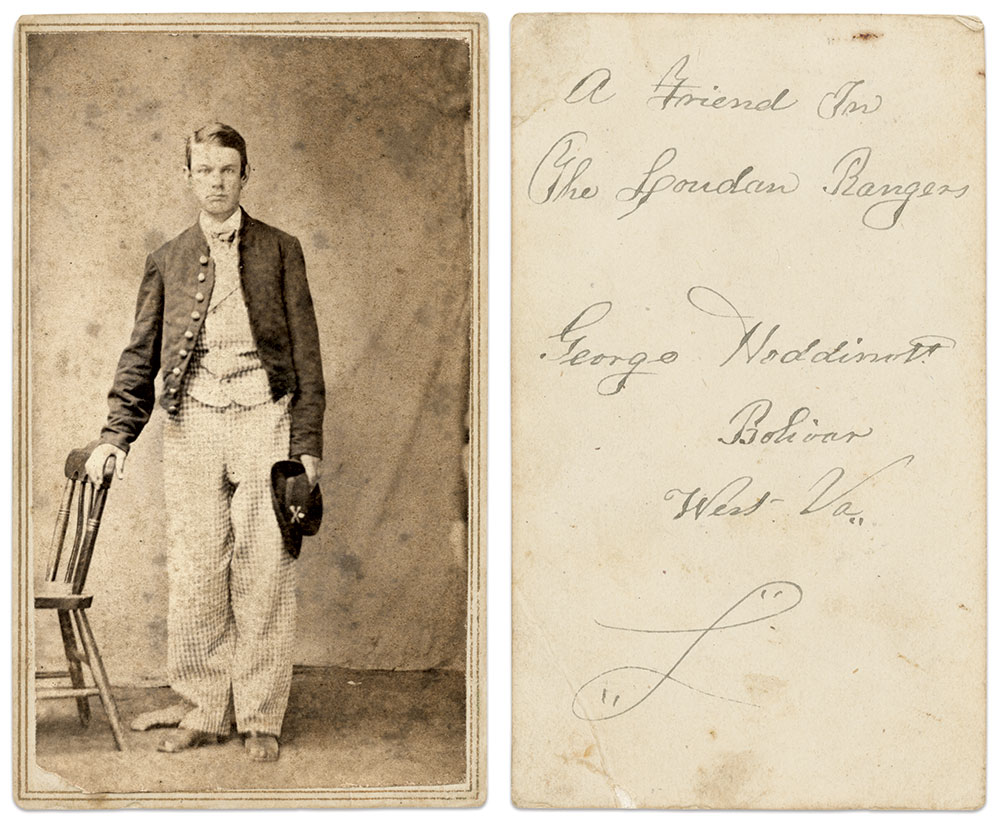 A Friend In
The Loudan Rangers
George Hoddinott
Bolivar
West Va,,